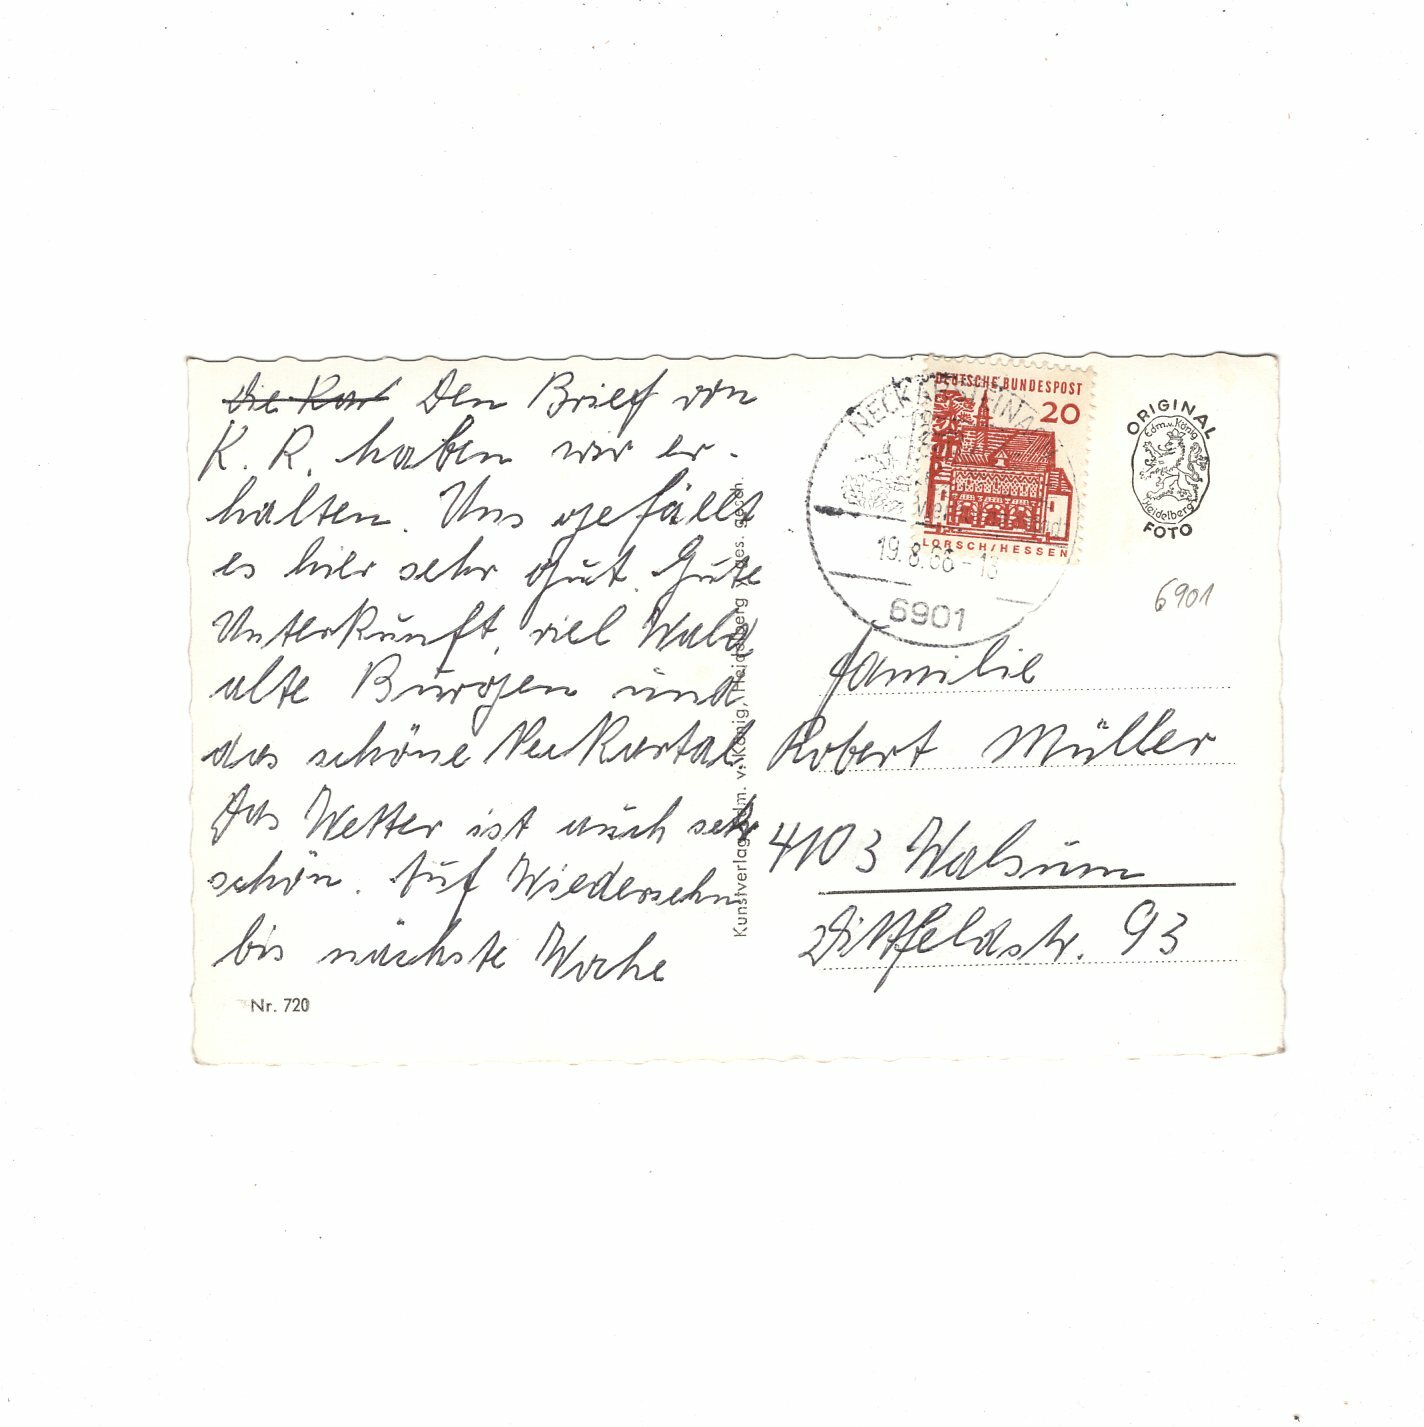 die Kart Den Brief von
K. R. haben wir er-
halten. Uns gefällt
es hier sehr gut. Gute
Unterkunft, viel Wald
alte Burgen und
das schöne Neckartal
Das Wetter ist auch sehr
schön. Auf Wiedersehn
bis nächste Woche
Nr. 720
Kunstverlag Edm. v. König, Heidelberg ges. gesch.
DEUTSCHE BUNDESPOST
20
LORSCH/HESSEN
NECKARSTEINACH
19.8.66-18
6901
ORIGINAL
Edm.v.König
Heidelberg
FOTO
6901
Familie
Robert Müller
4103 Walsum
Dittfeldstr. 93